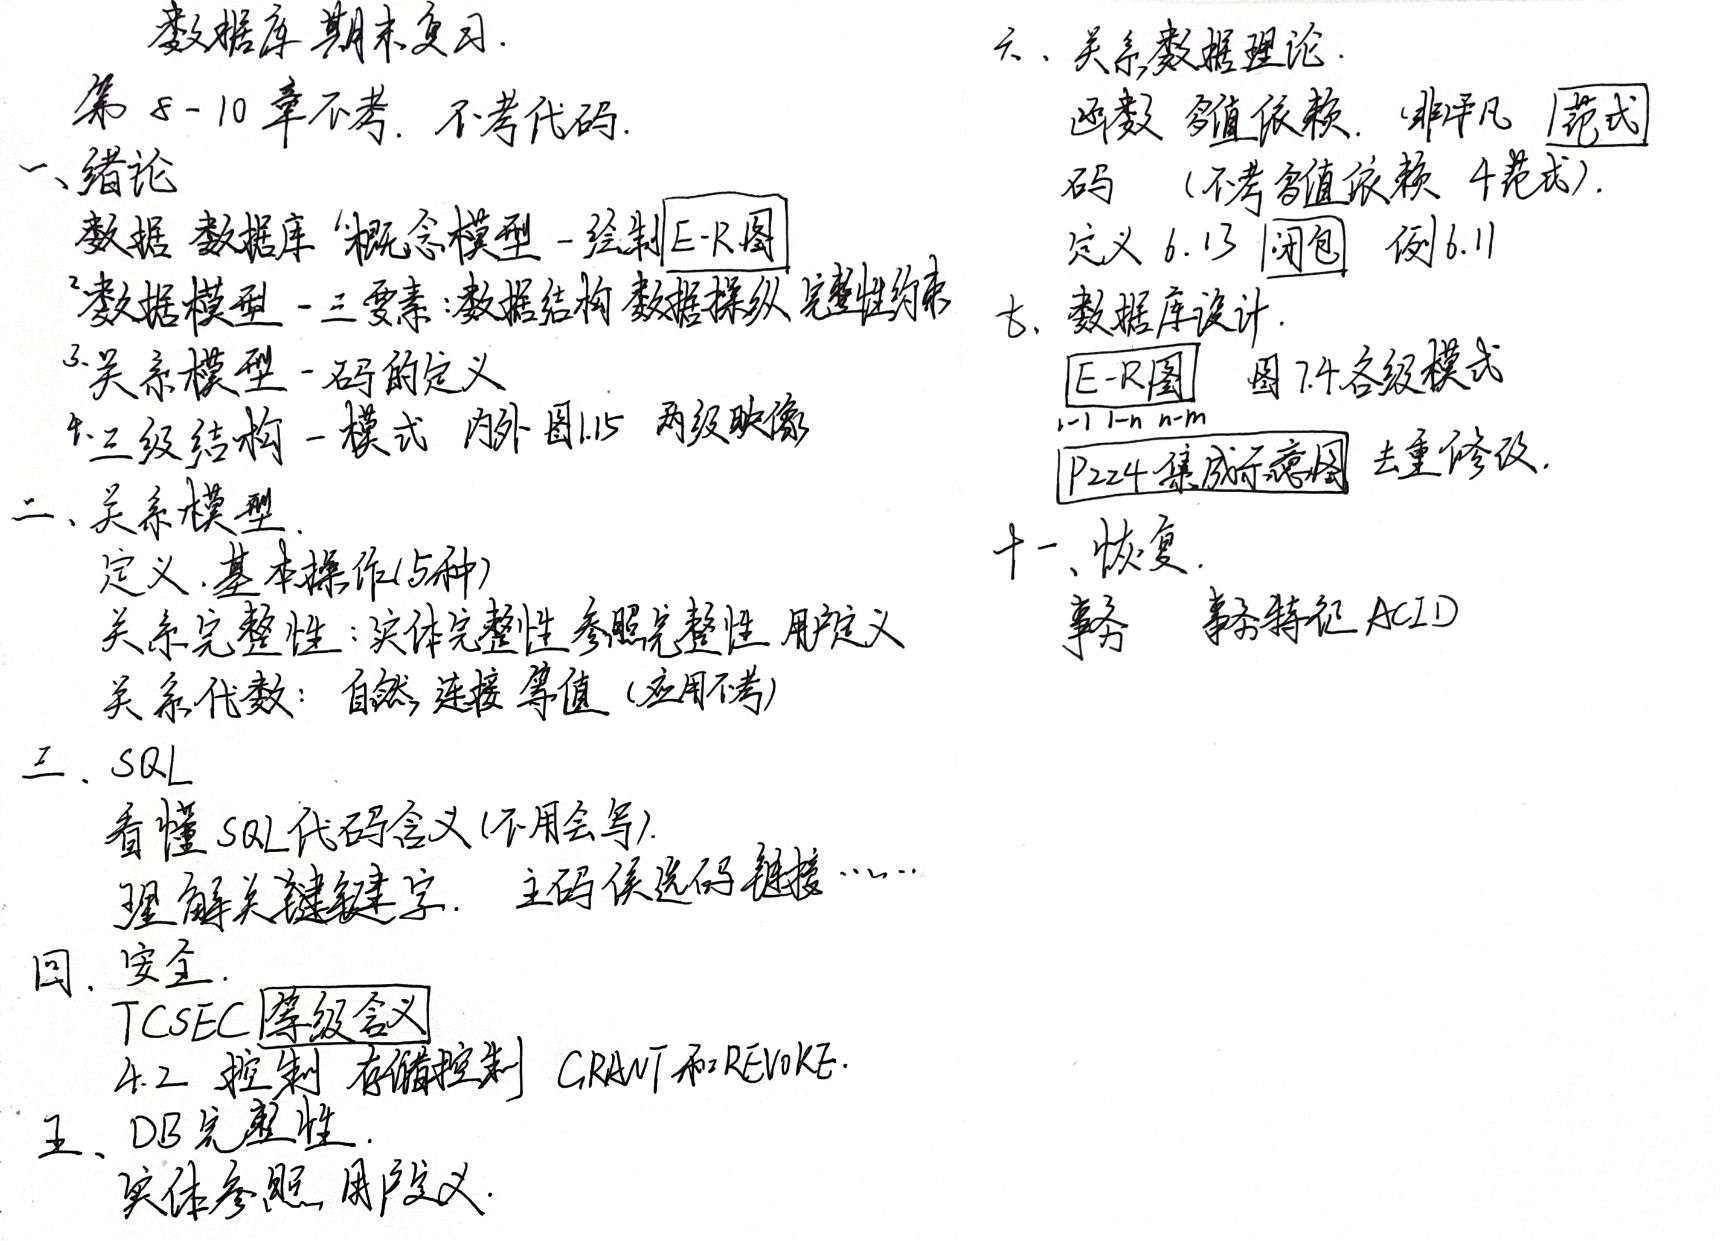 数据库期末复习.
第8-10章不考. 不考代码.
一、绪论
数据 数据库 1.概念模型-绘制E-R图
2.数据模型-三要素:数据结构 数据操纵 完整性约束
3.关系模型-码的定义
4.三级结构-模式 内外 图1.15 两级映像
二、关系模型.
定义.基本操作(5种)
关系完整性:实体完整性 参照完整性 用户定义
关系代数: 自然 连接 等值 (应用不考)
三、SQL
看懂SQL代码含义(不用会写).
理解关键键字. 主码 侯选码 链接……
四、安全.
TCSEC 等级含义
4.2 控制 存储控制 GRANT和REVOKE.
五、DB完整性.
实体 参照 用户定义.
六、关系数据理论.
函数 多值依赖. 非平凡 范式
码 (不考多值依赖 4范式).
定义6.13 闭包 例6.11
七、数据库设计.
E-R图 图7.4各级模式
1-1 1-n n-m
P224集成示意图 去重修改.
十一、恢复.
事务 事务特征ACID